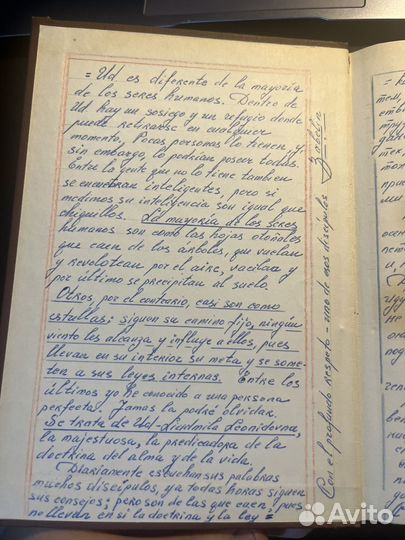 = Ud. es diferente de la mayoría
de los seres humanos. Dentro de
Ud hay un sosiego y un refugio donde
puede retirarse en cualquier
momento, Pocas personas lo tienen, y
sin embargo, lo podrían poseer todas.
Entre la gente que no lo tiene tambien
se encuentran inteligentes, pero si
medimos su inteligencia son igual que
chiquillos. La mayoría de los seres
humanos son como las hojas otoñales
que caen de los árboles, que vuelan
y revolotean por el aire, vacilan y
por último se precipitan al suelo.
Otros, por el contrario, casi son como
estrellas: siguen su camino fijo, ningún
viento les alcanza y influye a ellos, pues
llevan en su interior su meta y se some-
ten a sus leyes internas. Entre los
últimos yo he conocido a una persona
perfecta. Jamas la podré olvidar.
Se trata de Ud - Liudmila Leonidovna,
la majestuosa, la predicadora de la
doctrina del alma y de la vida.
Diariamente escuchan sus palabras
muchos discípulos, y a todas horas siguen
sus consejos; pero son de las que caen, pues
no llevan en sí la doctrina y la ley =
Con el profundo respeto - uno de sus discípulos
Avito